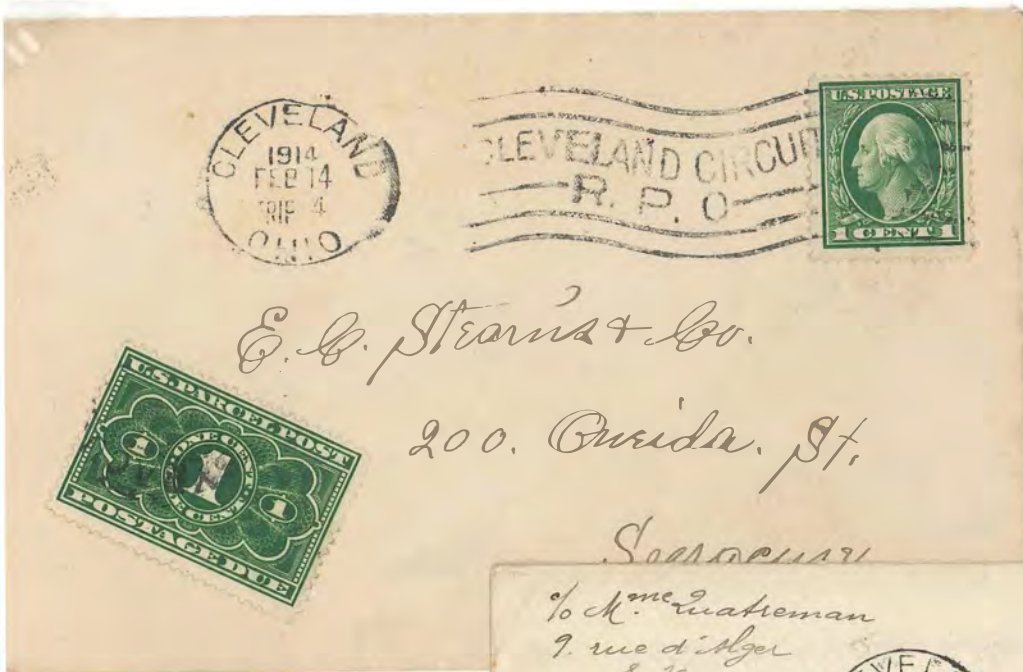 CLEVELAND
1914
FEB 14
TRIP 4
OHIO
CLEVELAND CIRCUIT
R. P. O
U.S. POSTAGE
1 CENT 1
E. C. Stearns & Co.
200. Oneida. St.
U.S. PARCEL POST
1 ONE CENT 1 ONE CENT 1
POSTAGE DUE
c/o Mme Quatreman
9. rue d'Alger